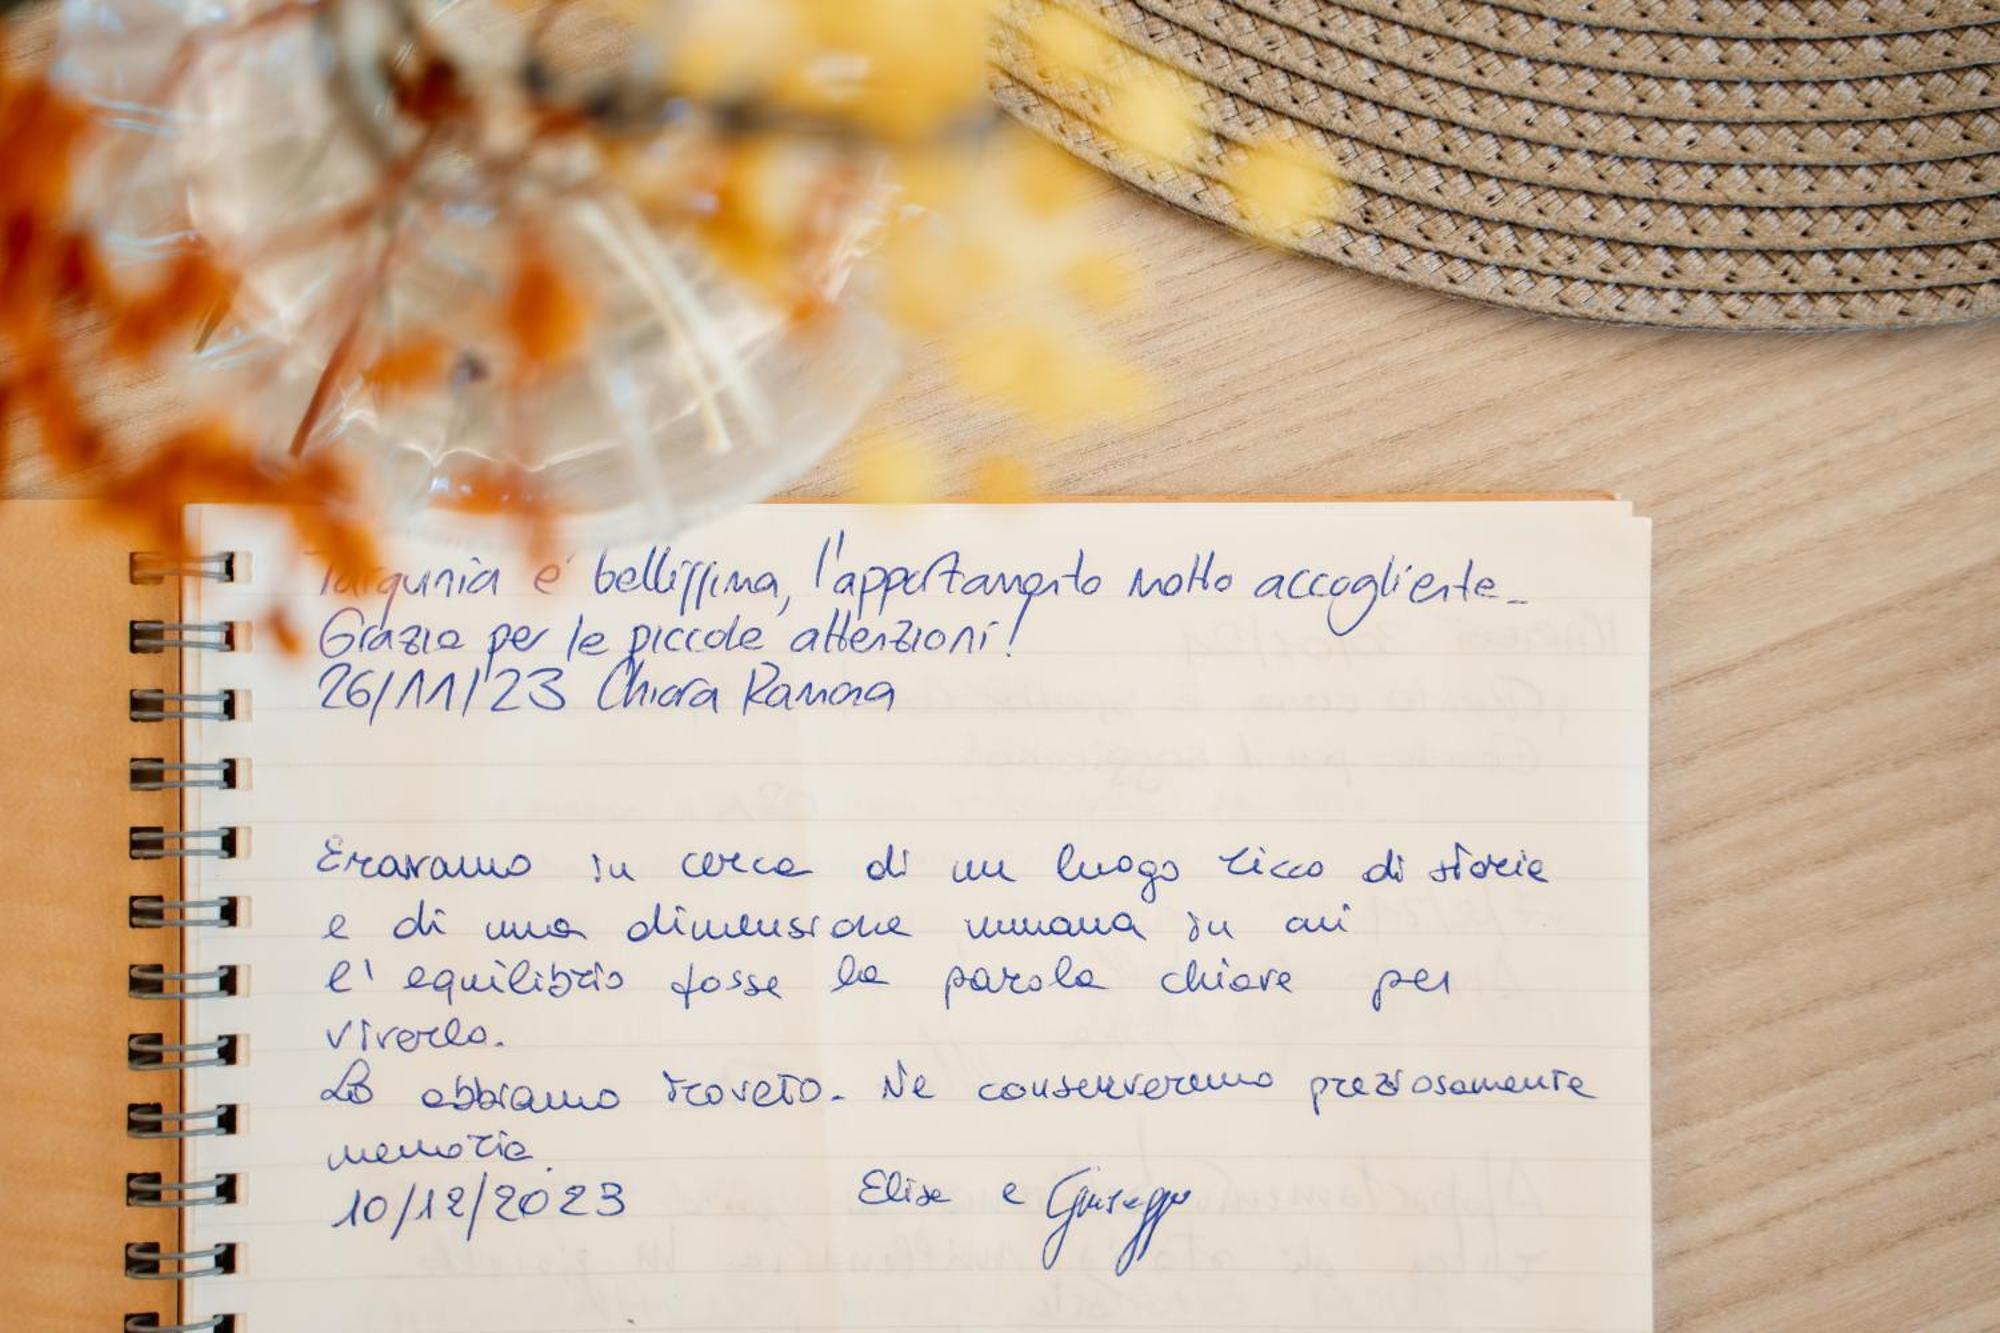 Tarquinia e' bellissima, l'appartamento molto accogliente.
Grazie per le piccole attenzioni!
26/11/'23 Chiara
Eravamo in cerca di un luogo ricco di storia
e di una dimensione umana in cui
l'equilibrio fosse la parola chiave per
viverla.
Lo abbiamo trovato. Ne conserveremo preziosamente
memoria.
10/12/2023 Elisa e Giuseppe